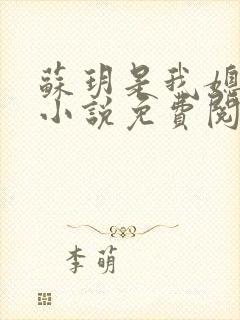 蘇玥是我媳
小說免費閱
李萌